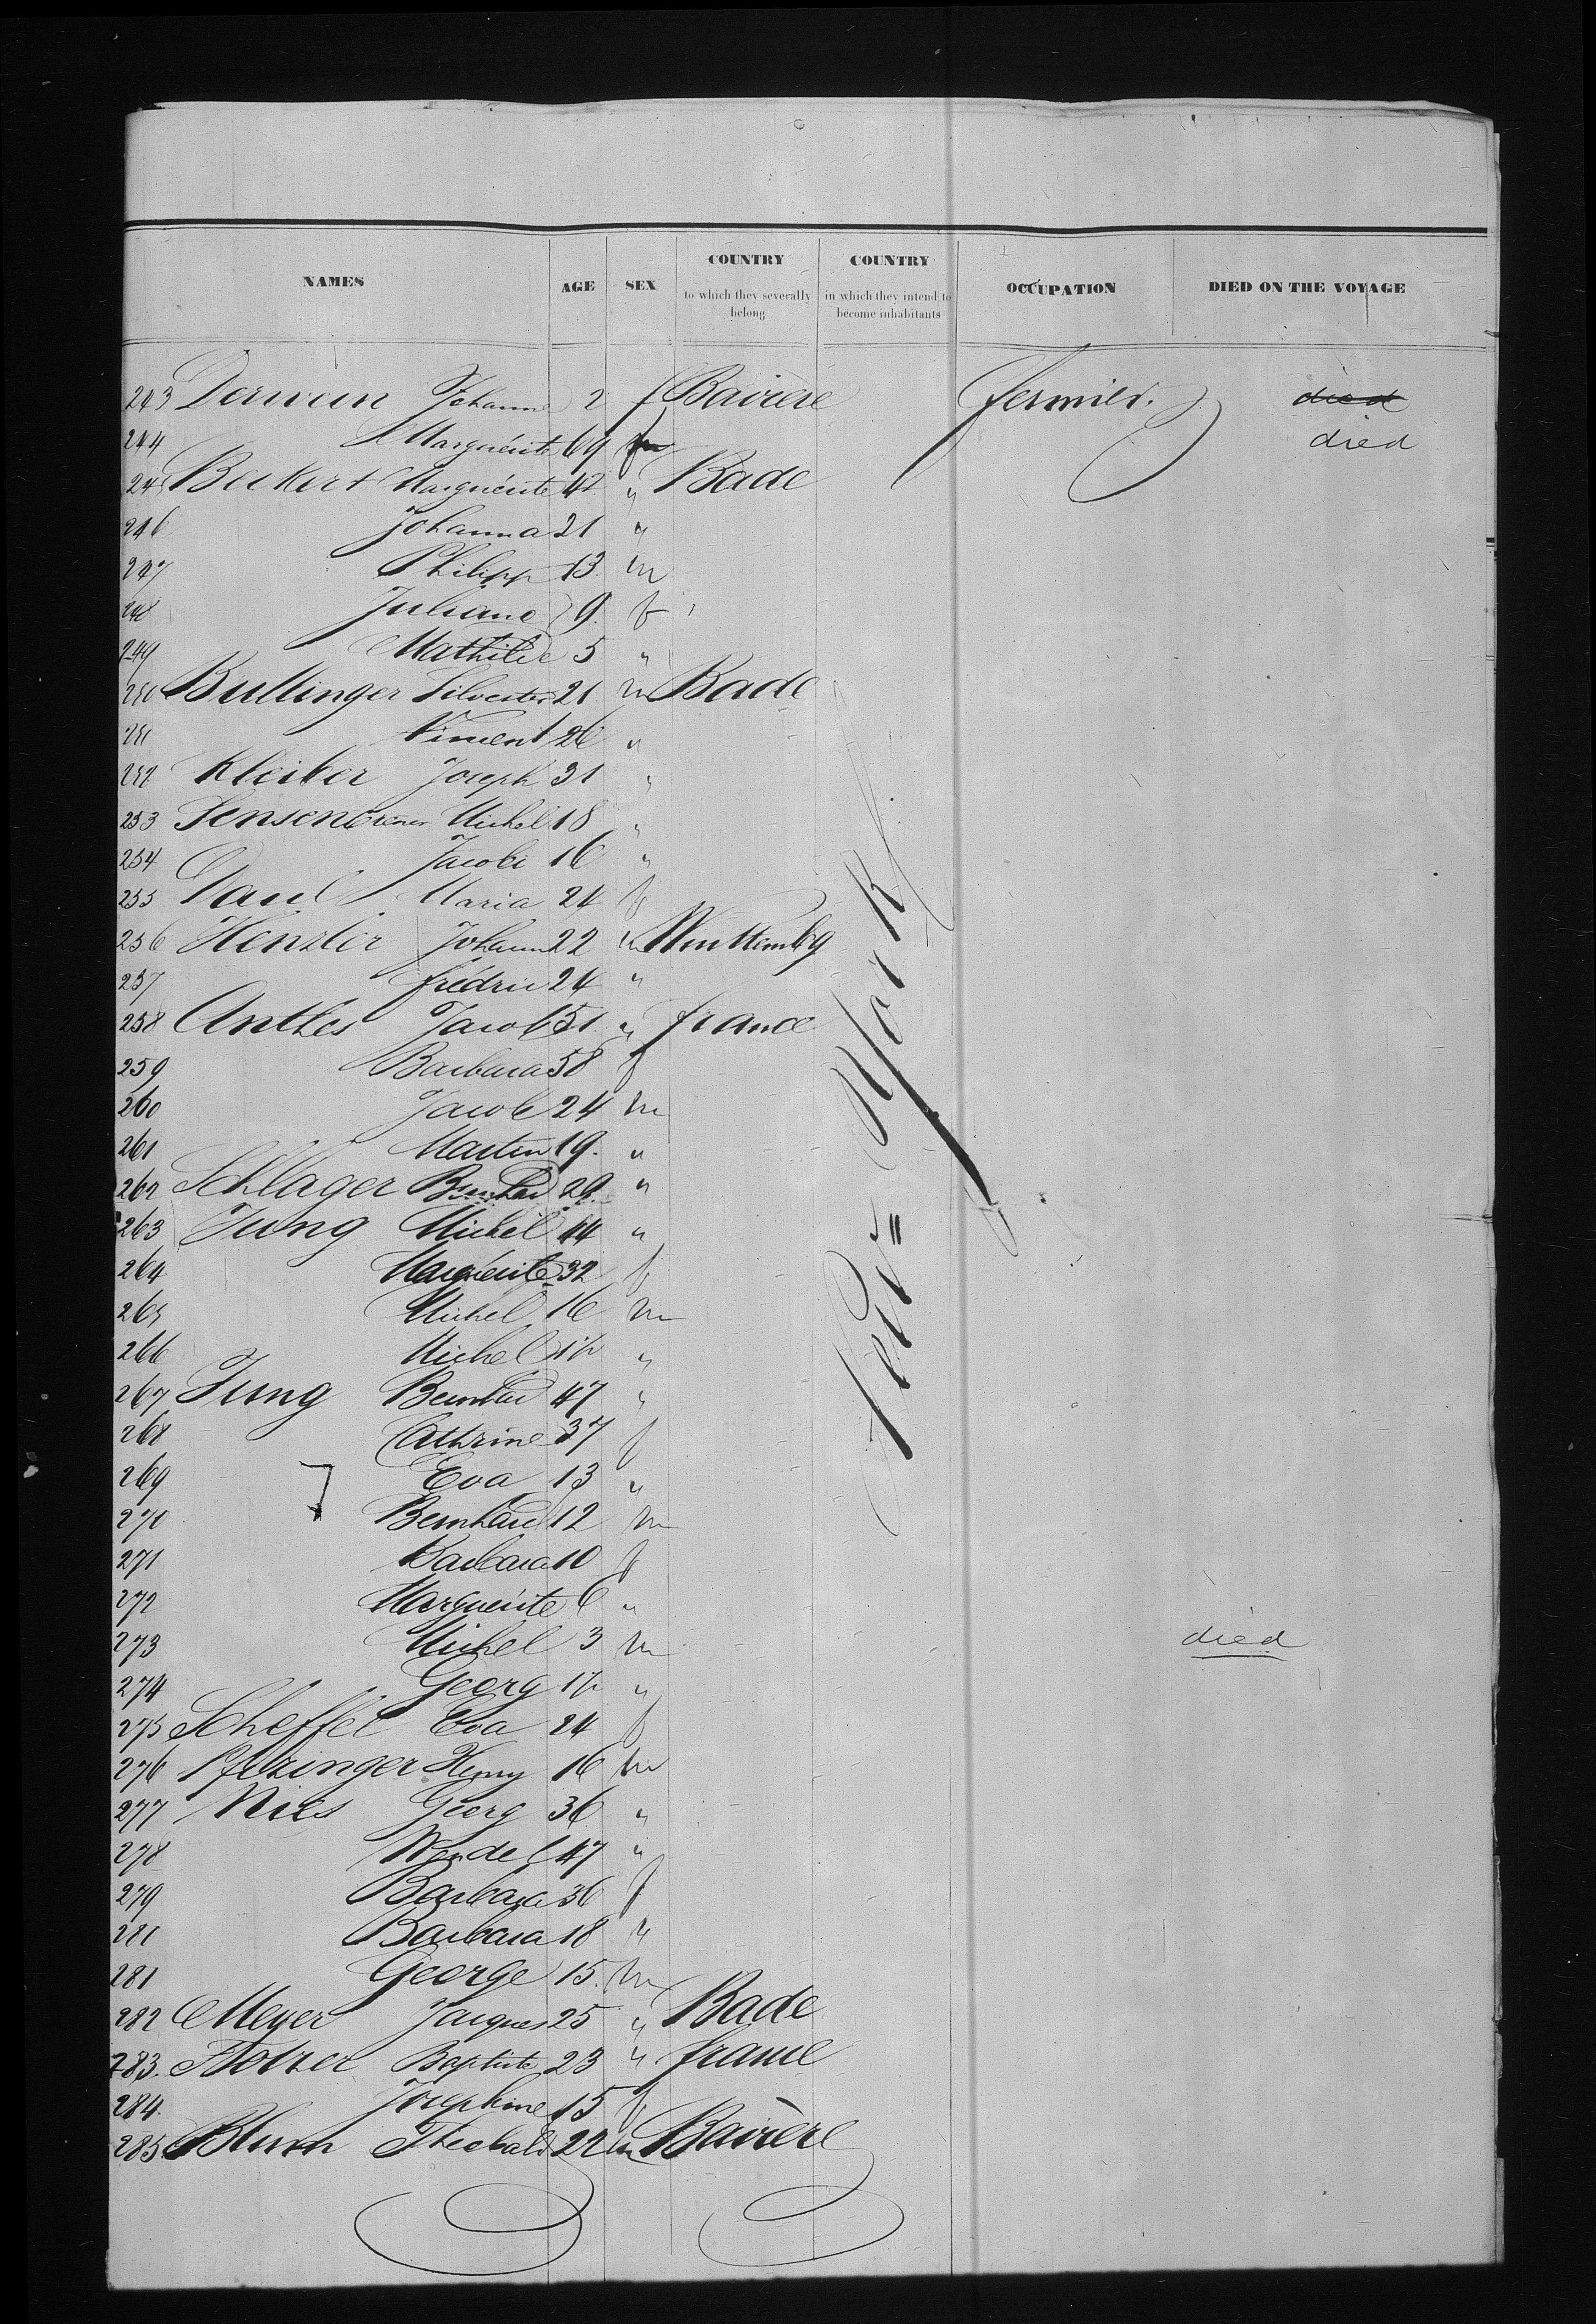 NAMES AGE SEX COUNTRY to which they severally belong COUNTRY in which they intend to become inhabitants OCCUPATION DIED ON THE VOYAGE
243 Johanne 2 f Bavière fermier. died
244 Marguérite 69 f died
245 Beckert Marguérite 42 " Bade
246 Johanna 21 "
247 Philipp 13 m
248 Juliane 9 f
249 Mathilde 5 "
250 Bullinger Silvester 21 m Bade
251 Vincent 26 "
252 Kleiber Joseph 31 "
253 Michel 18 "
254 Jacob 16 "
255 Daul Maria 24 f
256 Henzler Johann 22 m Wurttembg
257 frédric 24 "
258 Anthes Jacob 51 " france
259 Barbara 58 f
260 Jacob 24 m
261 Martin 19 "
262 Schlager Bernhard 29 "
263 Jung Michel 44 "
264 Marguérite 32 f
265 Michel 16 m
266 Michel 1½ "
267 Jung Bernhard 47 "
268 Cathrine 37 f
269 Eva 13 "
270 Bernhard 12 m
271 Barbara 10 f
272 Marguérite 6 "
273 Michel 3 m died
274 Georg 1½ "
275 Scheffel Eva 24 f
276 Pfezinger Henry 16 m
277 Nies Georg 36 "
278 Wendel 47 "
279 Barbara 36 f
281 Barbara 18 "
281 George 15 m
282 Meyer Jacques 25 " Bade
283. Baptiste 23 " france
284. Josephine 15 f
285 Blum Theobald 22 m Bavière
New=York